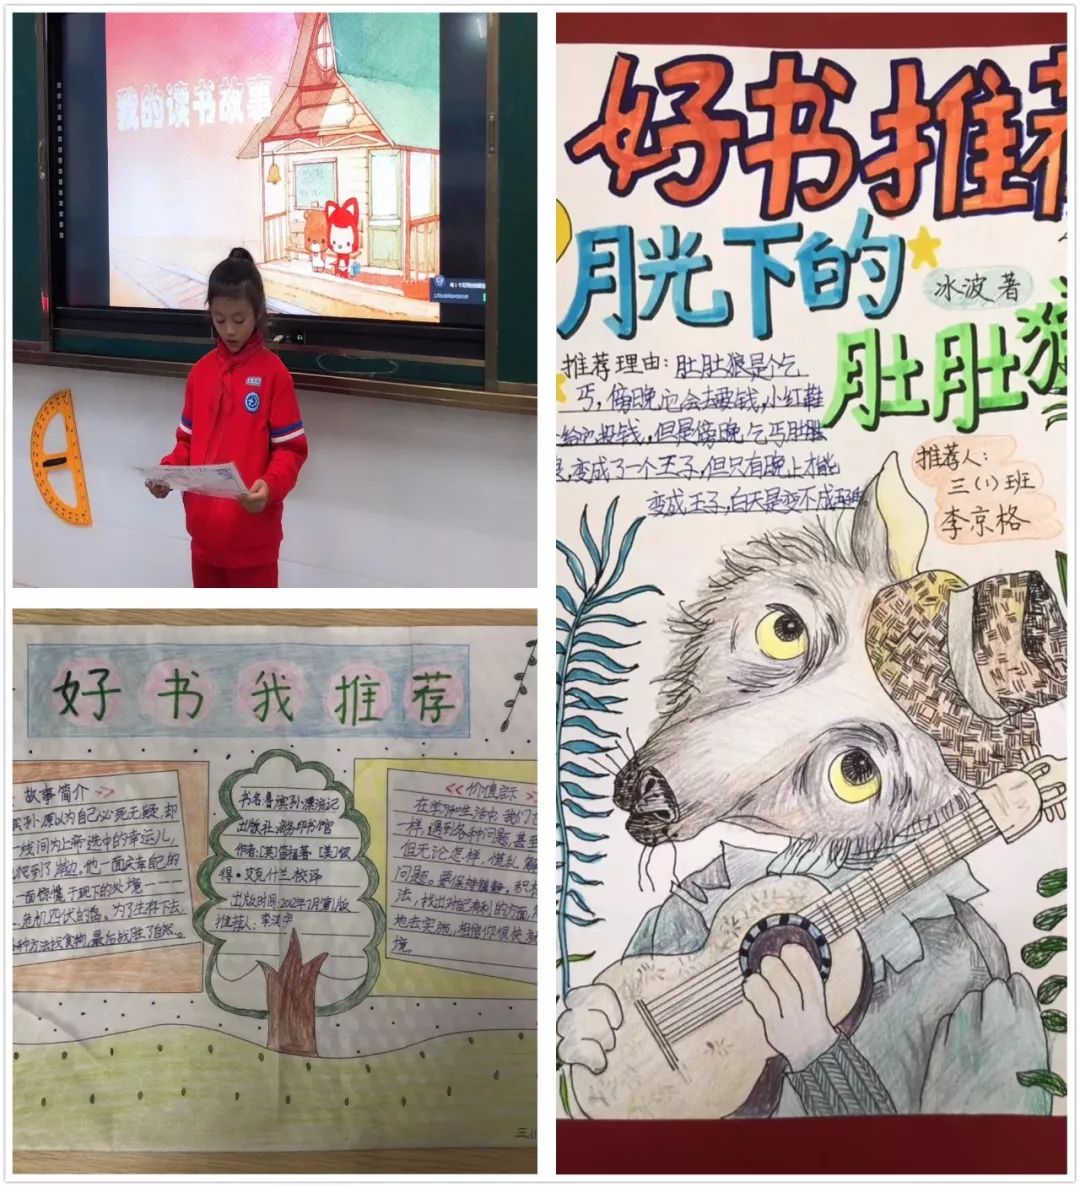 我的读书故事
好书推荐
月光下的
肚肚狼
冰波著
推荐理由:肚肚狼是个乞
丐,傍晚它会去要钱,小红鞋
给他投钱,但是傍晚乞丐肚肚
变成了一个王子,但只有晚上才能
变成王子,白天是变不成
推荐人:
三(1)班
李京格
好书我推荐
故事简介
原以为自己必死无疑,却
线间为上帝选中的幸运儿,
爬到了岸边。他一面庆幸自己的
一面惊慌于现下的处境----
危机四伏的岛。为了生存下去,
种方法找食物,最后战胜了自然。
书名:鲁滨孙漂流记
出版社:商务印书馆
作者:[英]笛福著·[美]
得·艾克什兰校译
出版时间:2012年7月第1版
推荐人:李淇宇
价值启示
在学习生活中,我们也
样,遇到各种问题,甚至
但无论怎样,慌乱解
问题。要保持镇静,积
法,找出对自己有利的方面,
地去实施,相信你很快就
境。